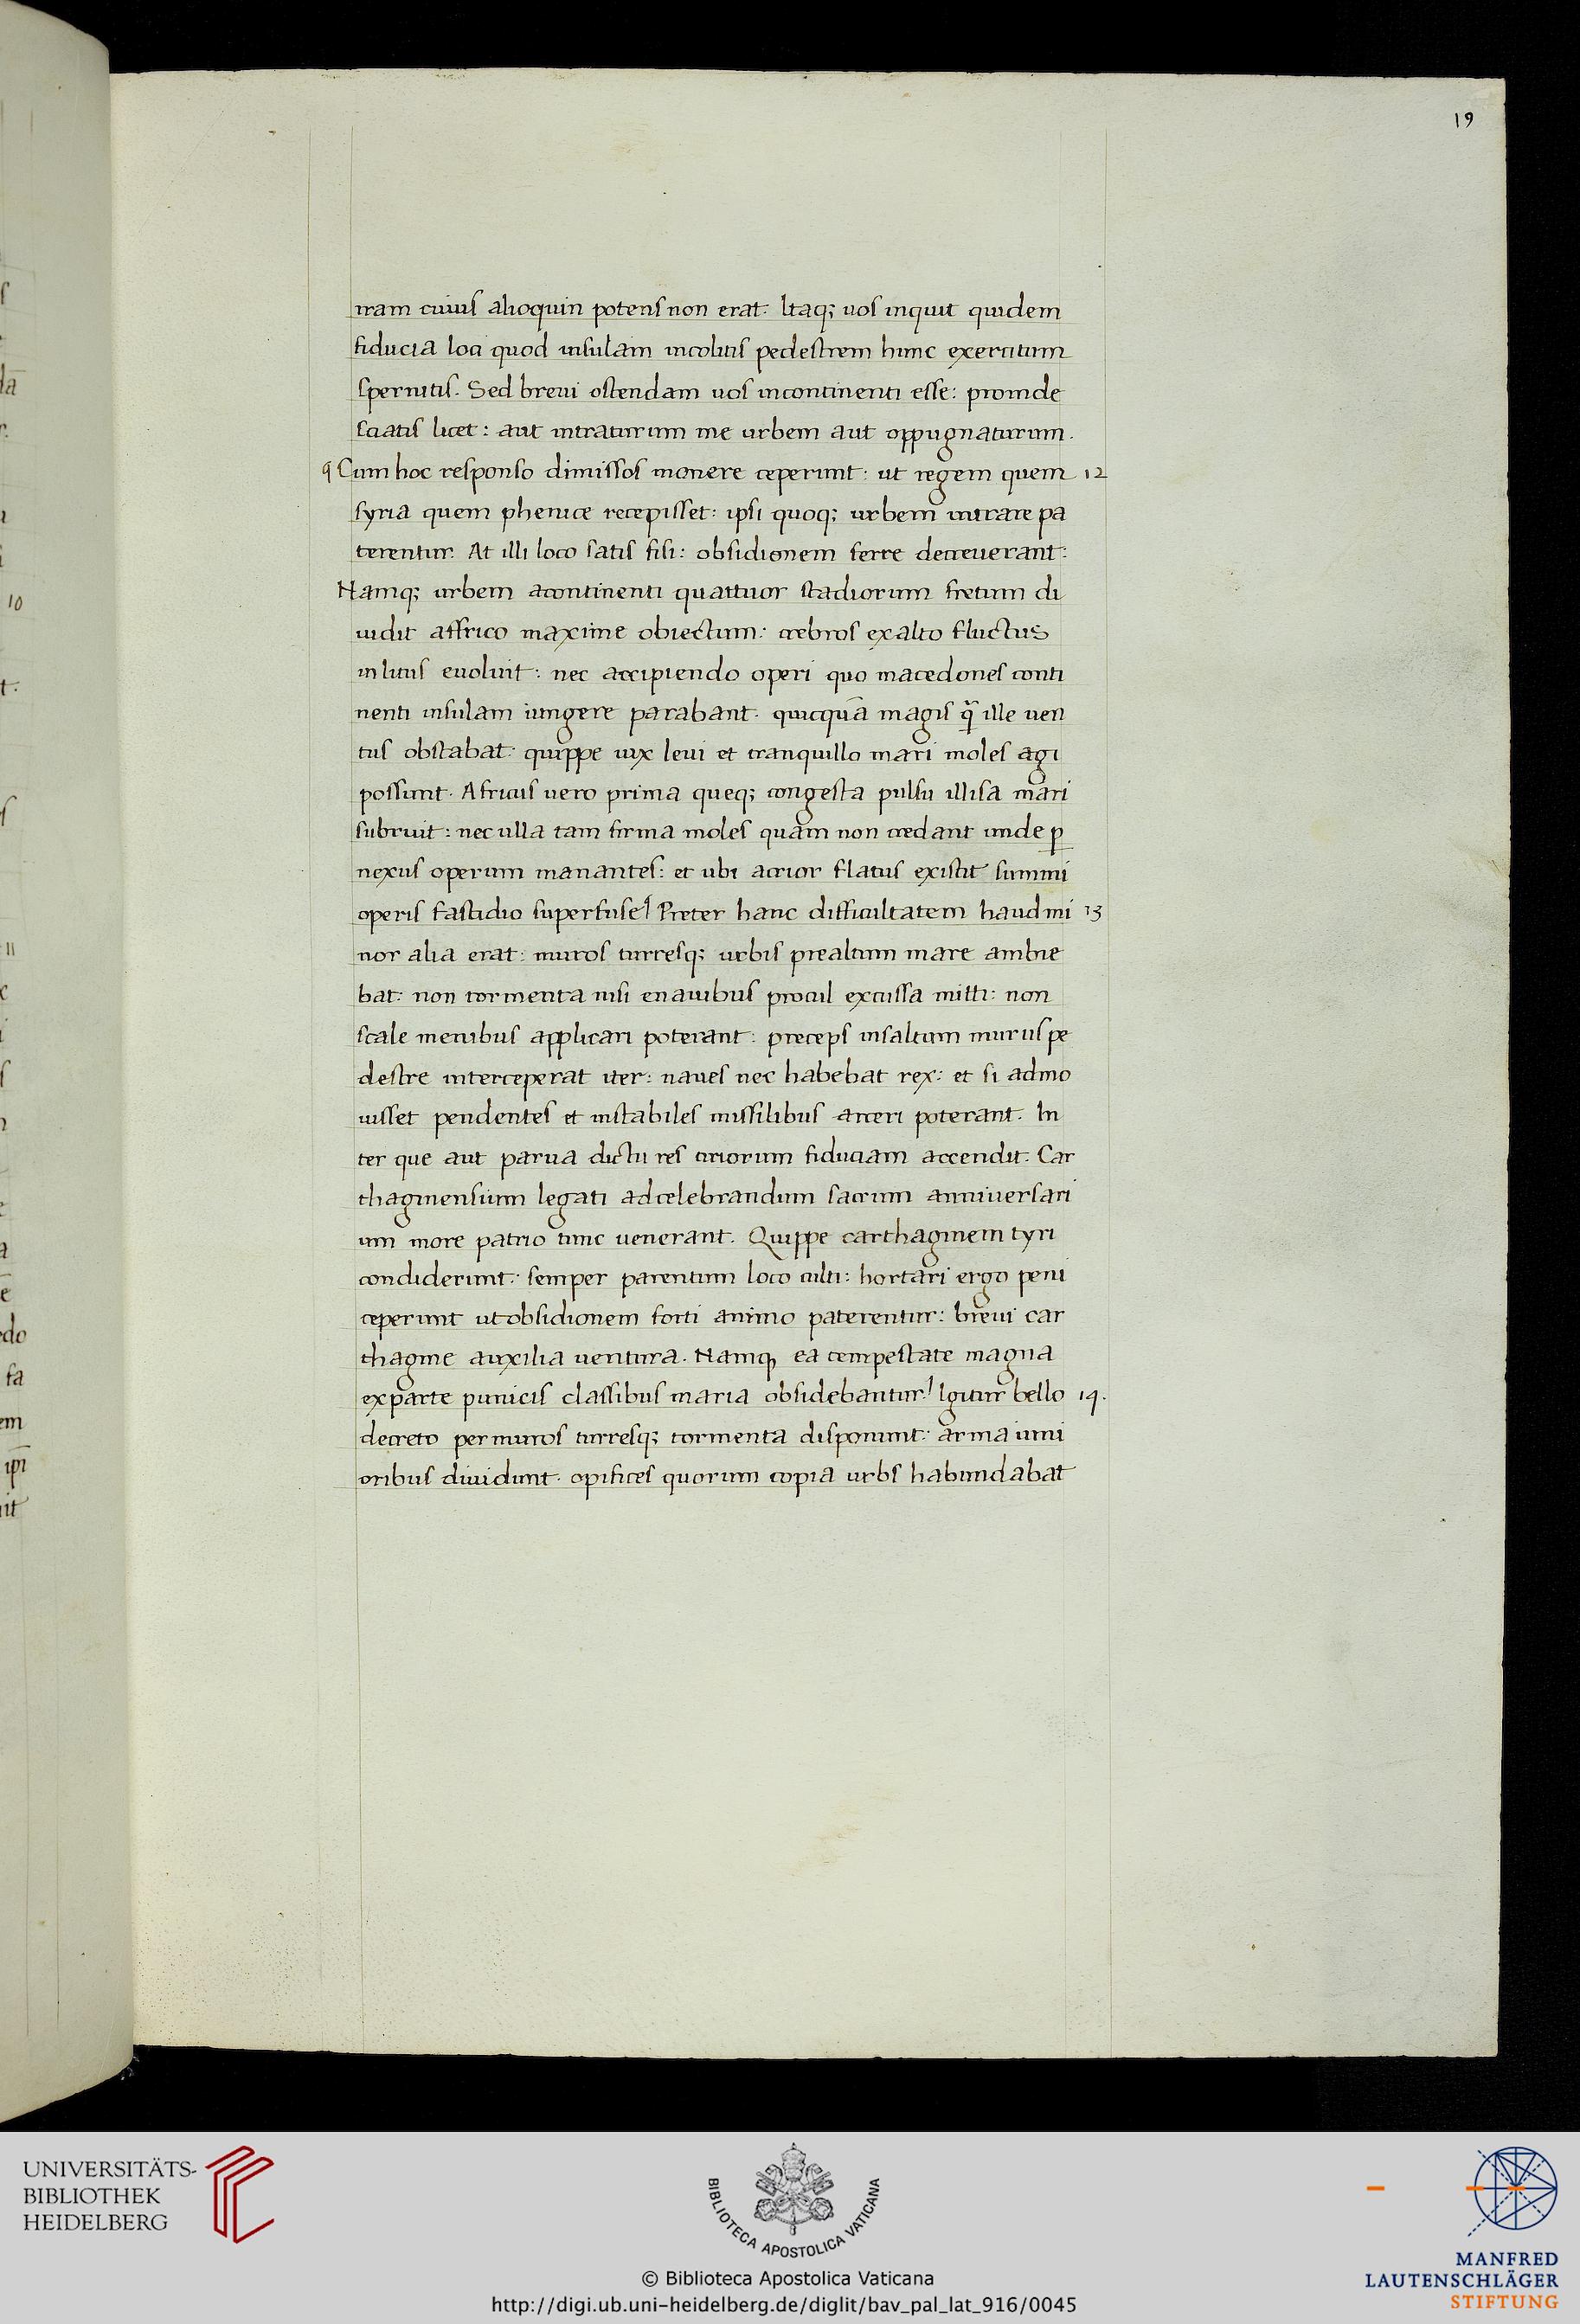 19
iram cuius alioquin potens non erat. Itaq; uos inquit quidem
fiducia loci quod insulam incolitis pedestrem hunc exercitum
spernitis. Sed breui ostendam uos incontinenti esse: proinde
sciatis licet: aut intraturum me urbem aut oppugnaturum.
Cum hoc responso dimissos monere ceperunt: ut regem quem 12
syria quem phenice recepisset: ipsi quoq; urbem intrare pa
terentur. At illi loco satis fisi: obsidionem ferre decreuerant:
Namq; urbem acontinenti quattuor stadiorum fretum di
uidit affrico maxime obiectum: crebros exalto fluctus
inlitus euoluit: nec accipiendo operi quo macedones conti
nenti insulam iungere parabant. quicquā magis q̄ ille uen
tus obstabat: quippe uix leui et tranquillo mari moles agi
possunt. Africus uero prima queq; congesta pulsu illisa mari
subruit: nec ulla tam firma moles quam non credant unde ꝑ
nexus operum manantes: et ubi acrior flatus existit summi
operis fastidio superfuse Preter hanc difficultatem haud mi 13
nor alia erat: muros turresq; urbis prealtum mare ambie
bat: non tormenta nisi enauibus procul excussa mitti: non
scale menibus applicari poterant: preceps insaltum murus pe
destre interceperat iter: naues nec habebat rex: et si admo
uisset pendentes et instabiles missilibus arceri poterant. In
ter que aut parua dictu res tiriorum fiduciam accendit. Car
thaginensium legati adcelebrandum sacrum anniuersari
um more patrio tunc uenerant. Quippe carthaginem tyri
condiderunt: semper parentum loco culti: hortari ergo peni
ceperunt utobsidionem forti animo paterentur: breui car
thagine auxilia uentura. Namq, ea tempestate magna
exparte punicis classibus maria obsidebantur. Igitur bello 14.
decreto permuros turresq; tormenta disponunt: arma iuni
oribus diuidunt. opifices quorum copia urbs habundabat
UNIVERSITÄTS-
BIBLIOTHEK
HEIDELBERG
BIBLIOTECA APOSTOLICA VATICANA
© Biblioteca Apostolica Vaticana
http://digi.ub.uni-heidelberg.de/diglit/bav_pal_lat_916/0045
MANFRED
LAUTENSCHLÄGER
STIFTUNG